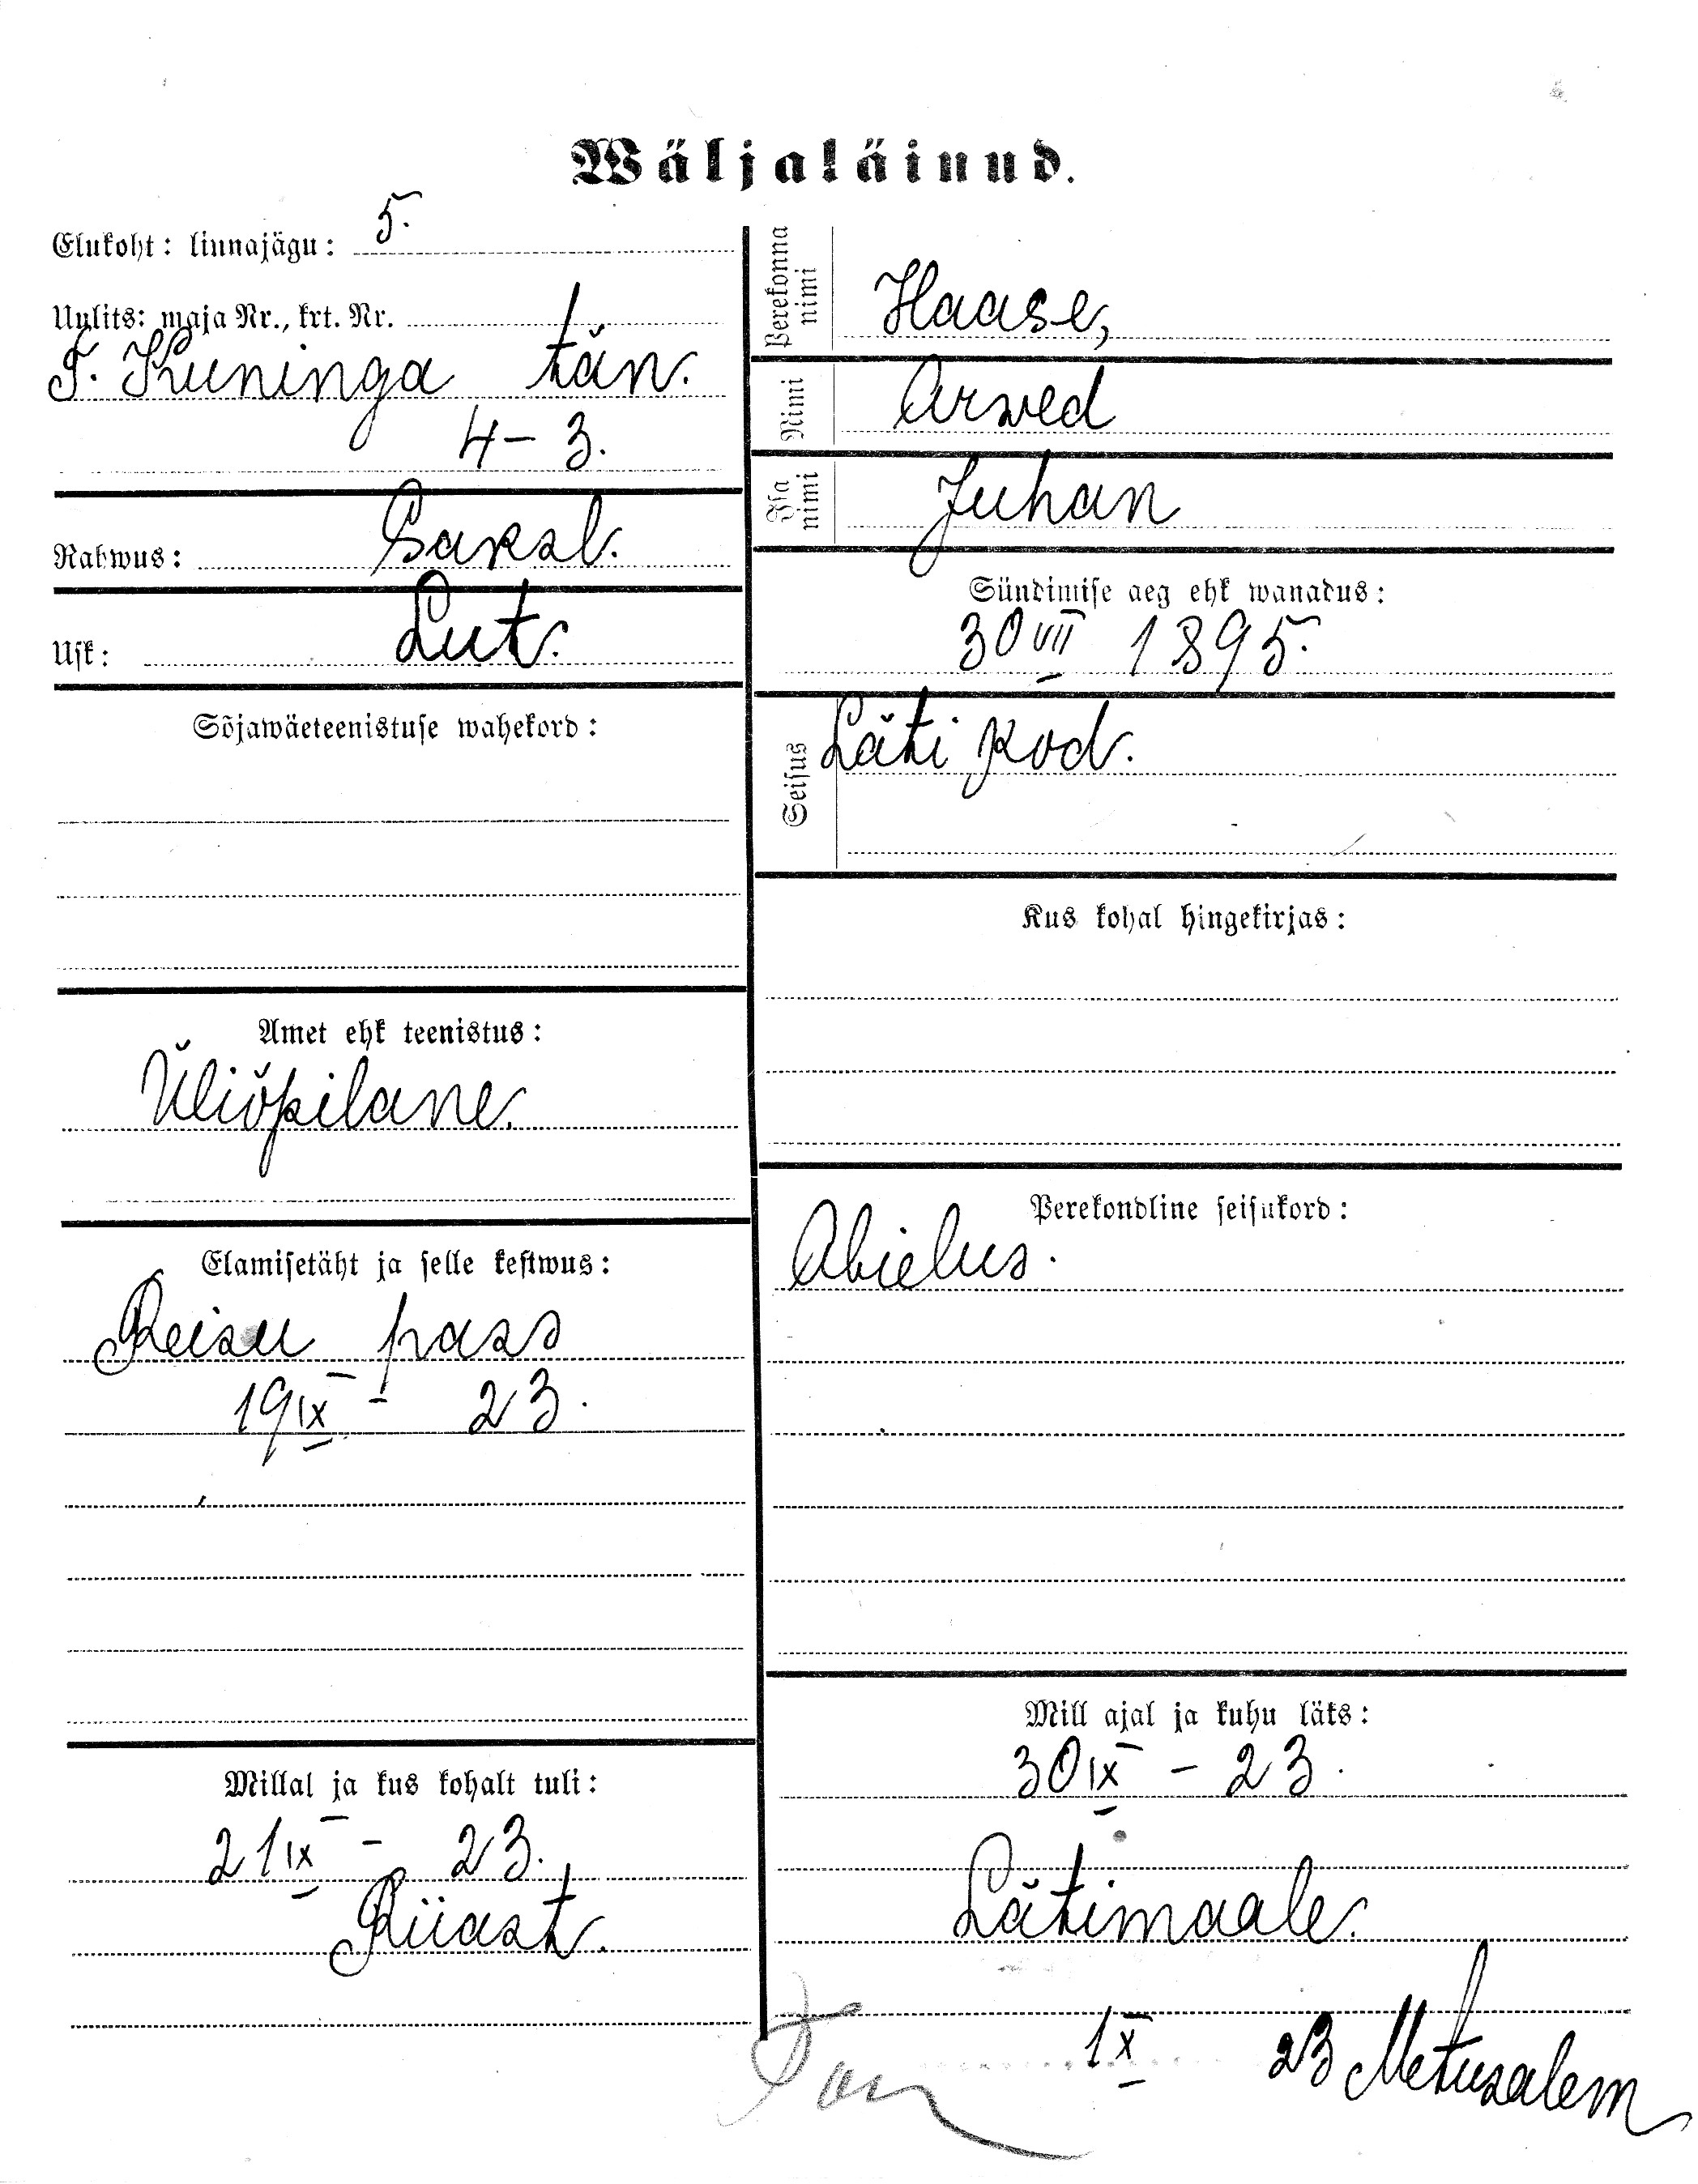 Wäljaläinud.
Elukoht: linnajägu: 5.
Uulits: maja Nr., krt. Nr.
T. Kuninga tän.
4-3.
Rahwus: Saksl.
Usk: Lut.
Sõjawäeteenistuse wahekord:
Amet ehk teenistus:
Üliõpilane.
Elamisetäht ja selle kestwus:
Reisu pass
19 IX - 23.
Millal ja kus kohalt tuli:
21 IX - 23.
Riiast.
Perekonna nimi Haase,
Nimi Arwed
Isa nimi Juhan
Sündimise aeg ehk wanadus:
30 VII 1895.
Seisus Läti kod.
Kus kohal hingekirjas:
Perekondline seisukord:
Abielus.
Mill ajal ja kuhu läks:
30 IX - 23.
Lätimaale.
1 X 23 Metusalem